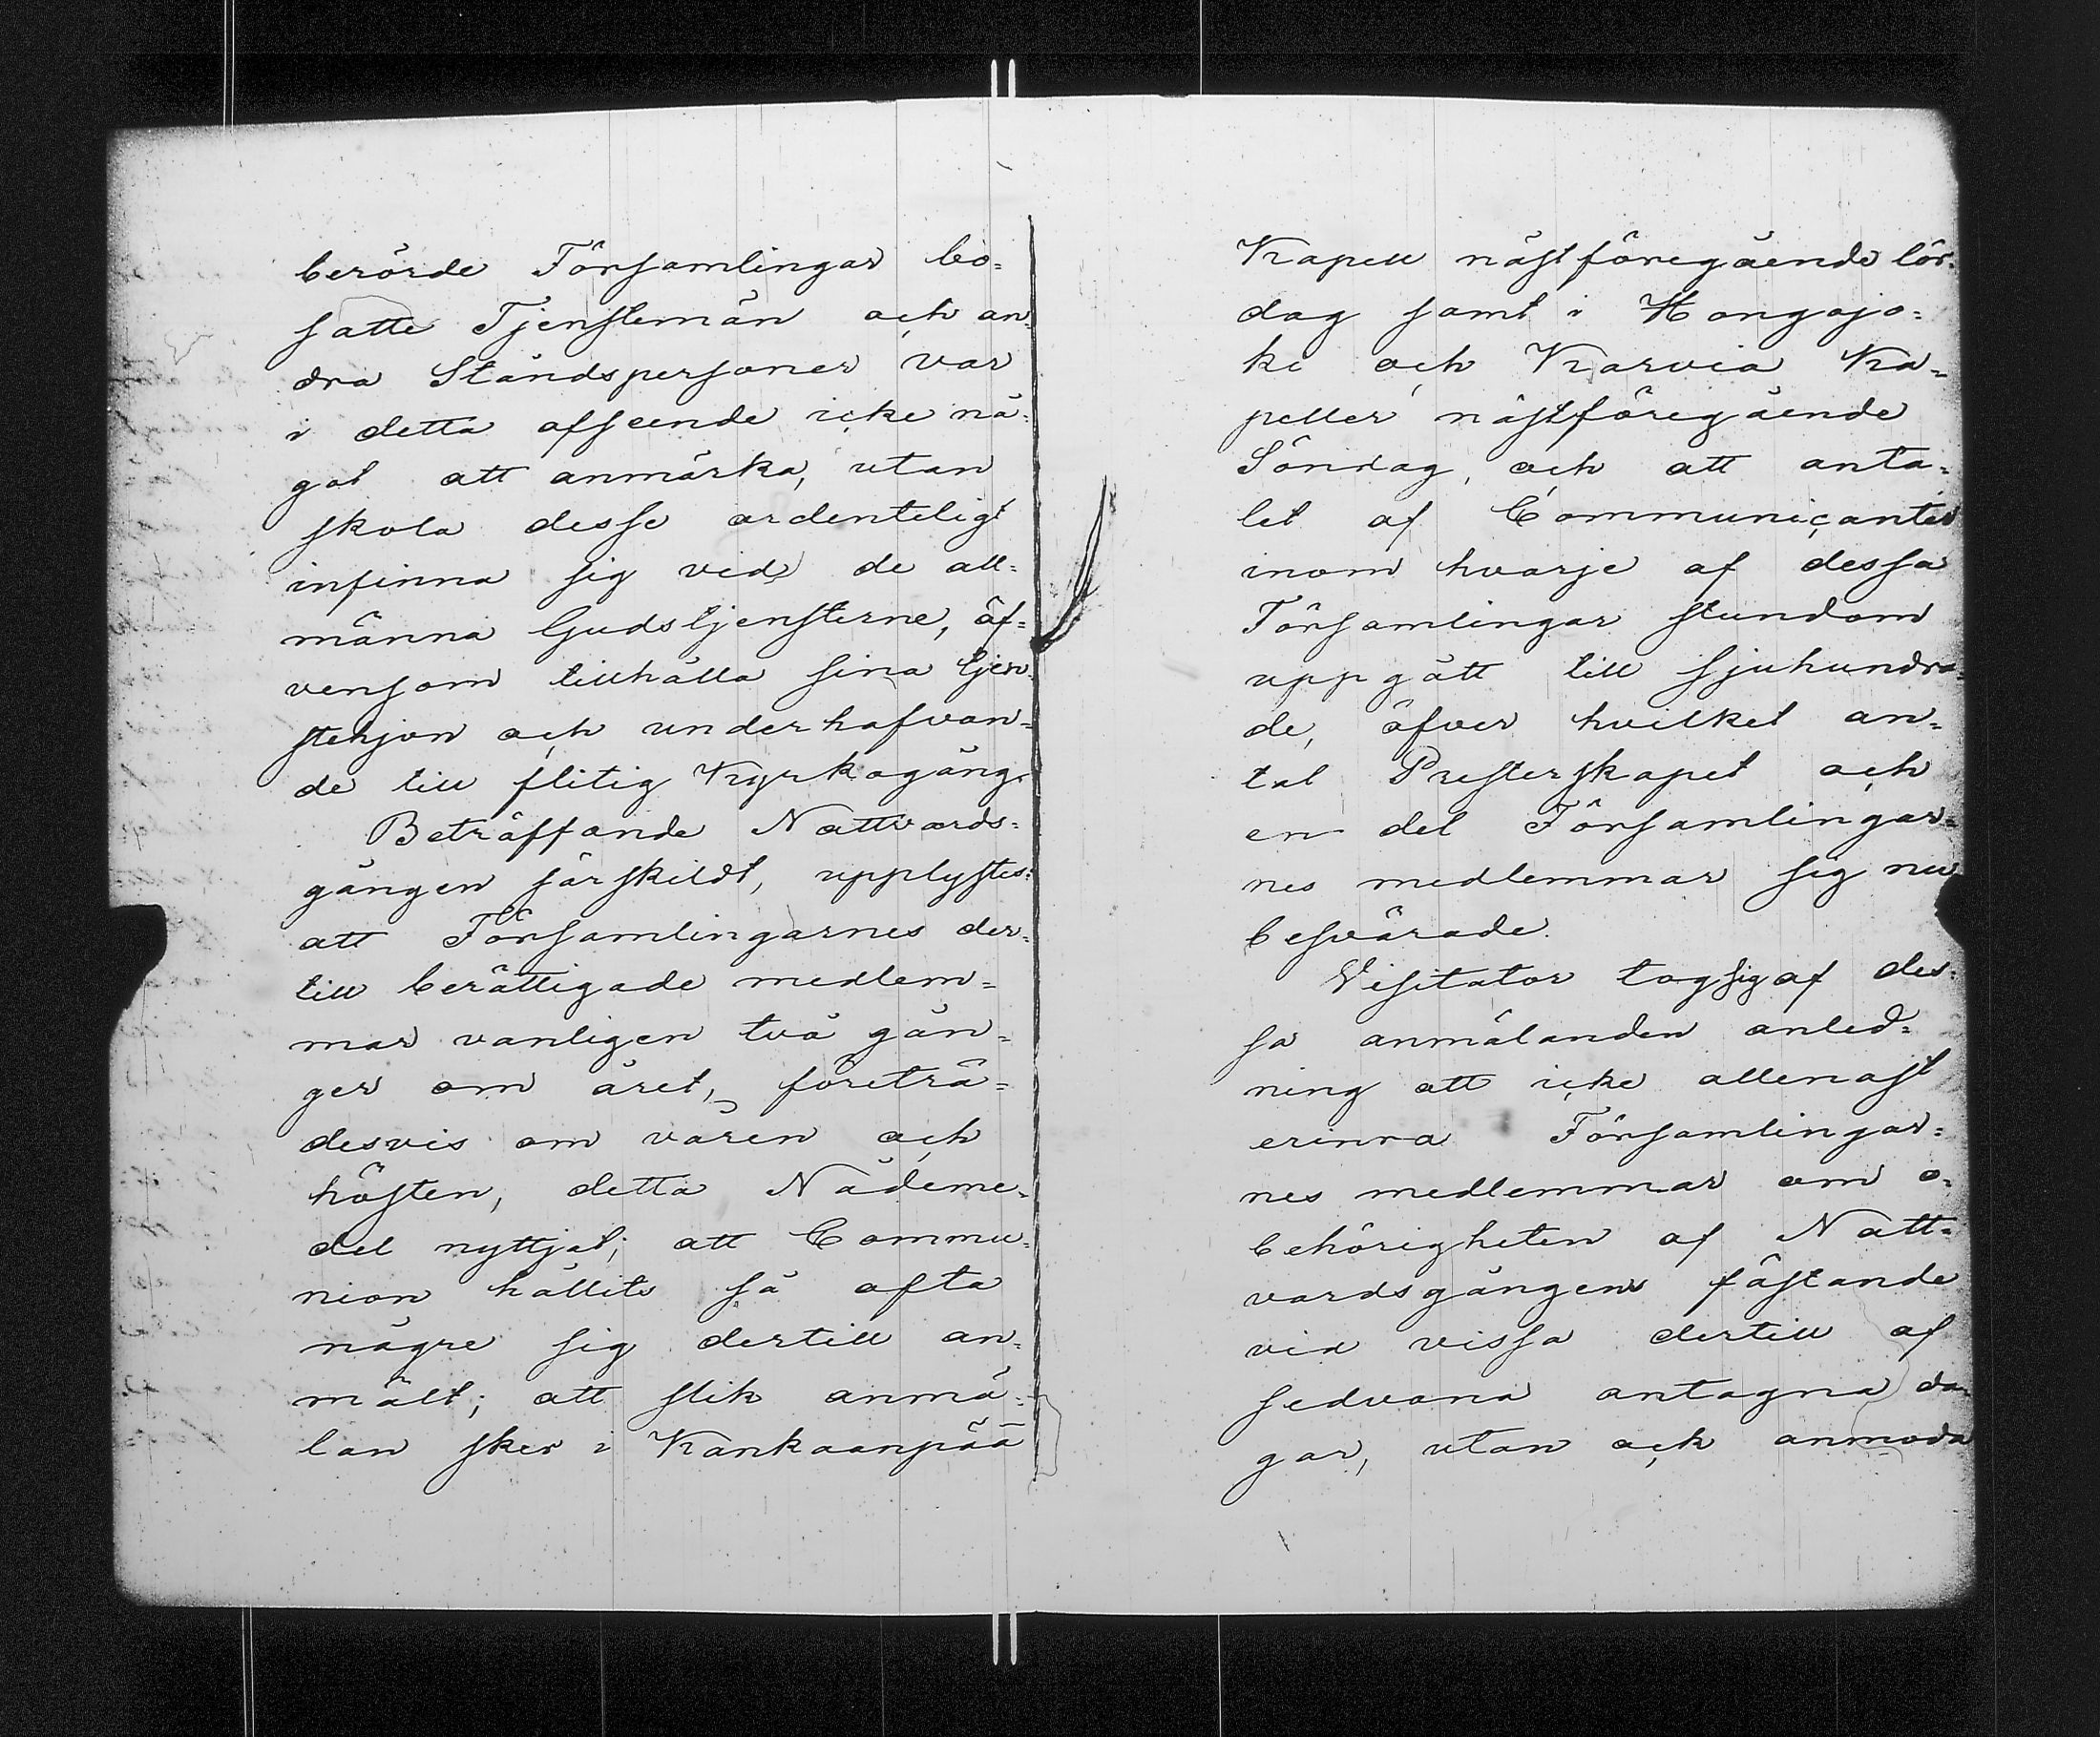 berörde Församlingar bo=
satte Tjenstemän och an=
dra Ståndspersoner var
i detta afseende icke nå=
got att anmärka, utan
skola desse ordenteligt
infinna sig vid de all=
männa Gudstjensterne, äf=
vensom tillhålla sina tjen=
stehjon och underhafvan=
de till flitig Kyrkogång.
Beträffande Nattvards=
gången särskildt, upplystes:
att Församlingarnes der=
till berättigade medlem=
mar vanligen två gån=
ger om året, företrä=
desvis om våren och
hösten, detta Nådeme=
del nyttjat; att Commu=
nion hållits så ofta
någre sig dertill an=
mält; att slik anmä=
lan sker i Kankaanpää
Kapell nästföregående lör=
dag samt i Hongojo=
ki och Karvia Ka=
peller nästföregående
Söndag, och att anta=
let af Communicanter
inom hvarje af dessa
Församlingar stundom
uppgått till sjuhundra=
de, öfver hvilket an=
tal Presterskapet och
en del Församlingar=
nes medlemmar sig nu
besvärade.
Visitator tog sig af des=
sa anmälanden anled=
ning att icke allenast
erinra Församlingar=
nes medlemmar om o=
behörigheten af Natt=
vardsgångens fästande
vid vissa dertill af
sedvana antagna da=
gar, utan ock anmoda